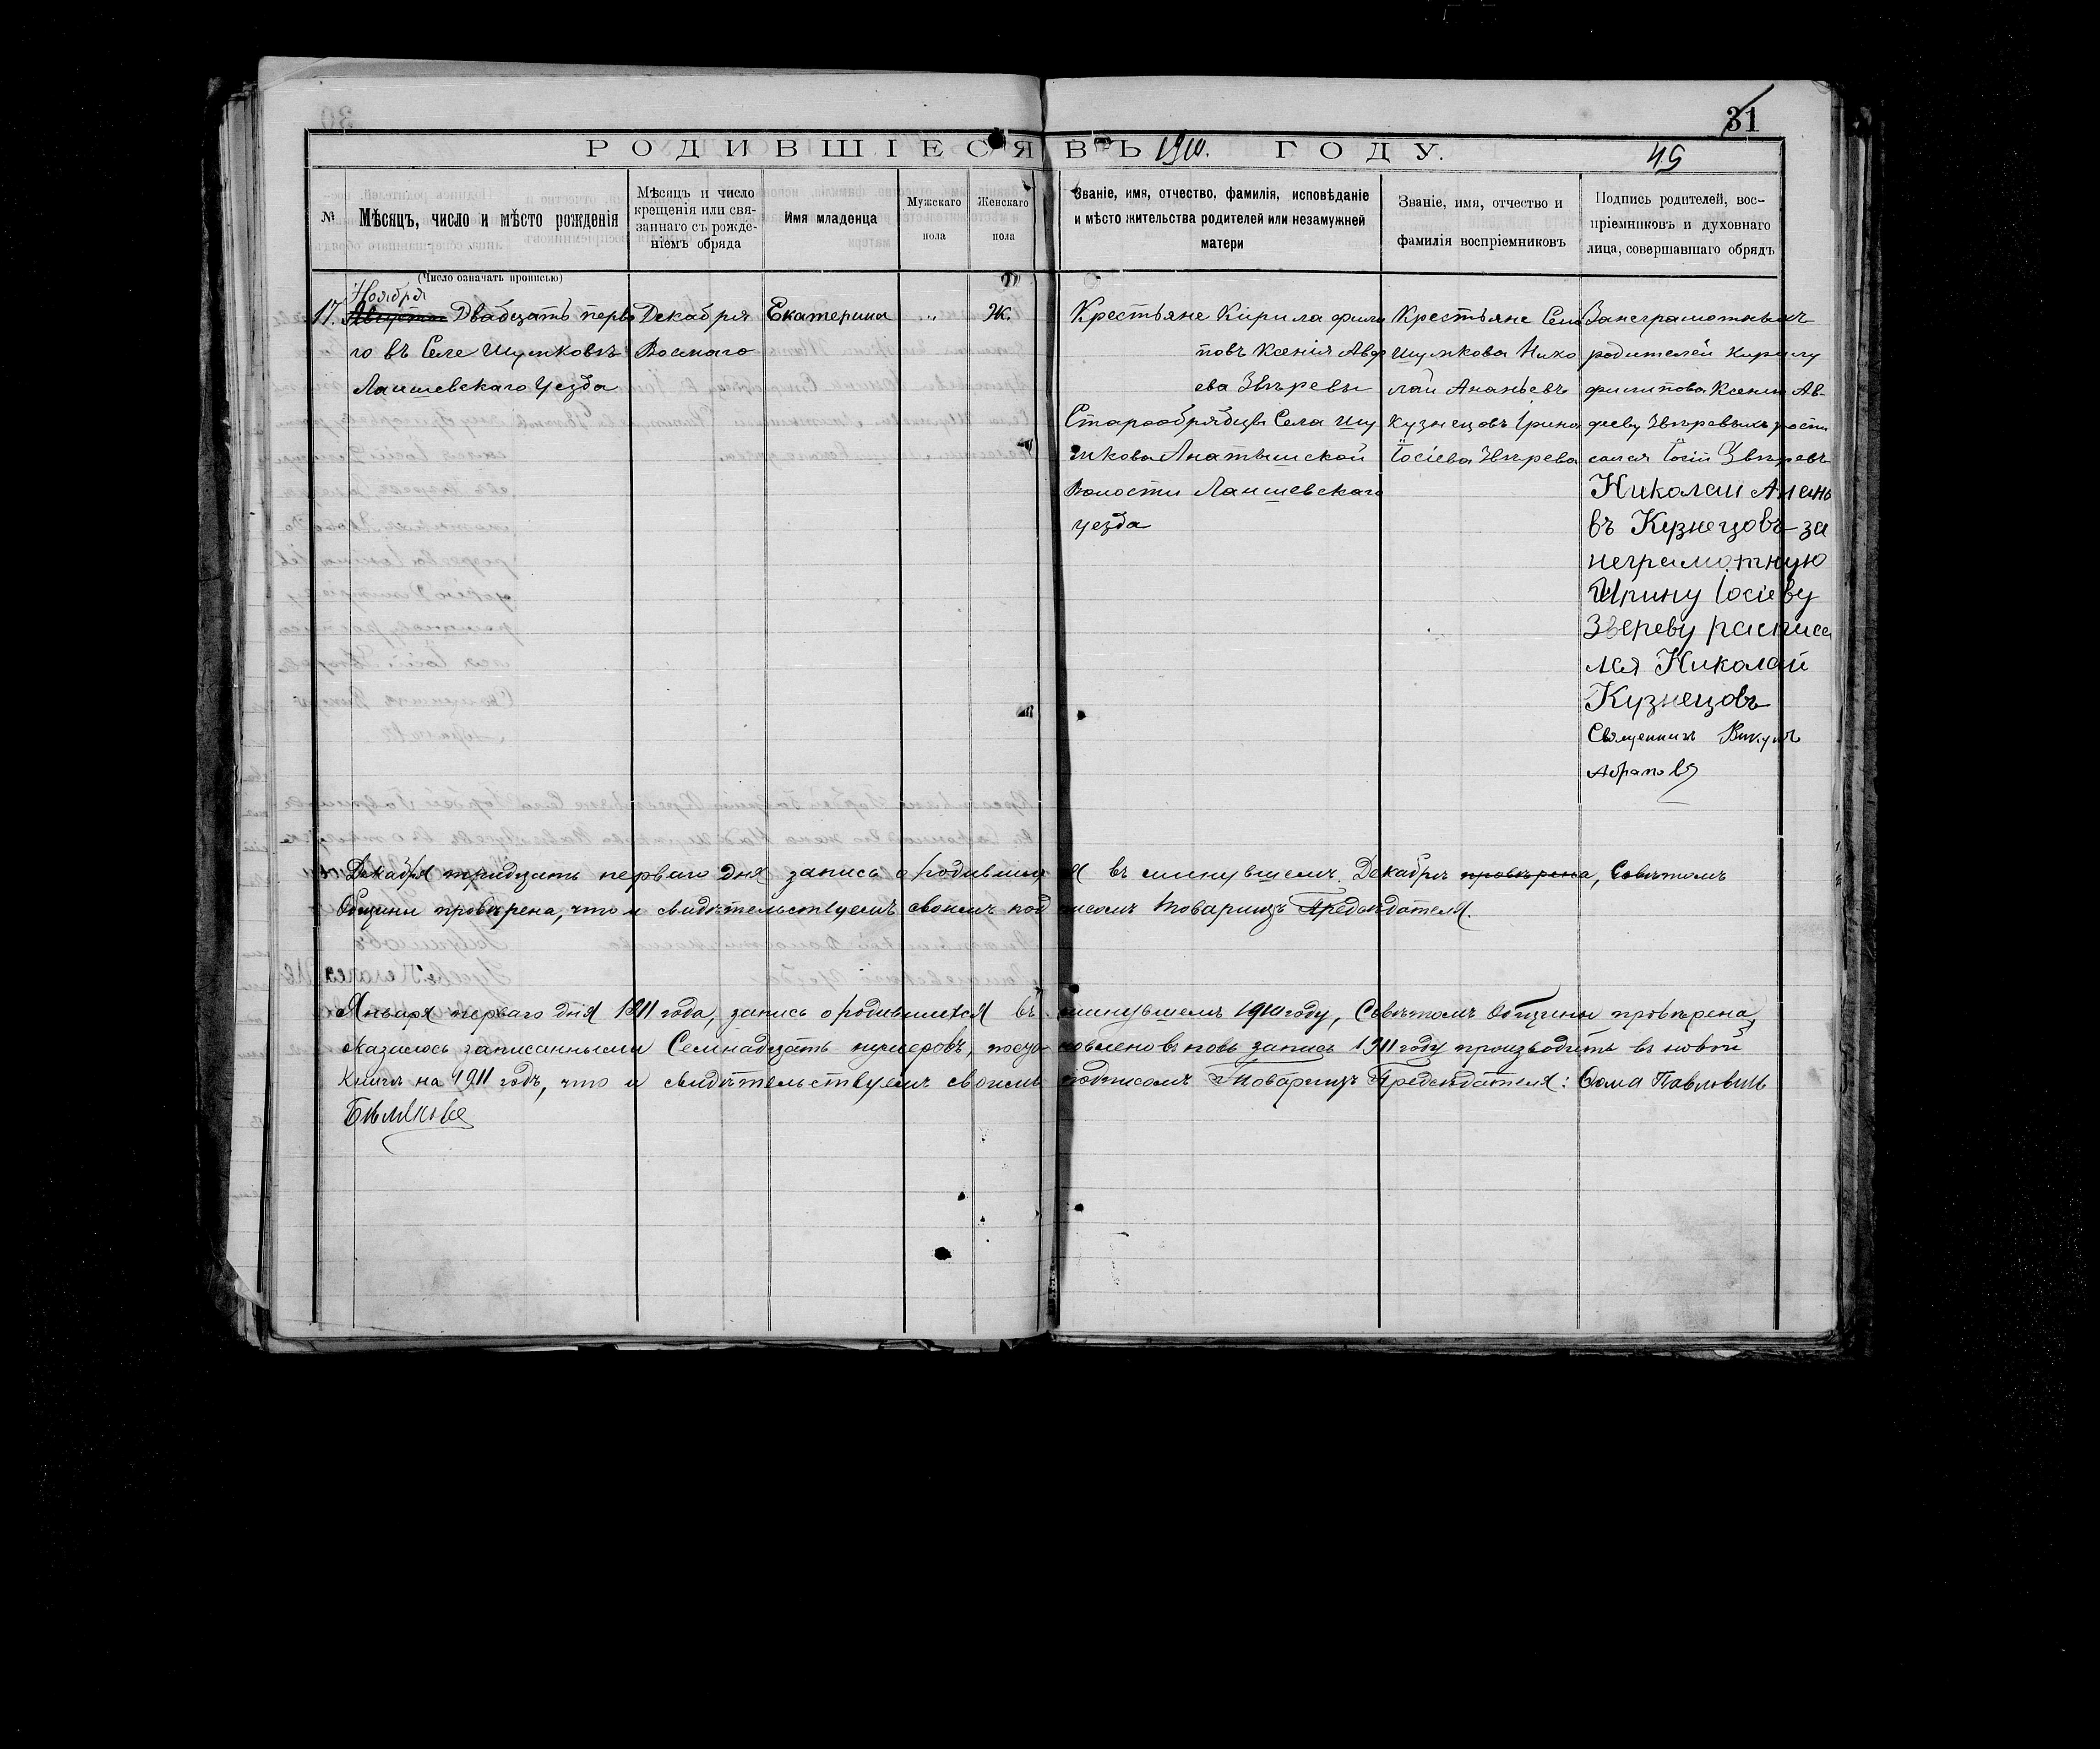 31
РОДИВШІЕСЯ ВЪ 1910. ГОДУ.
45
№
Мѣсяцъ, число и мѣсто рожденія
Мѣсяцъ и число
крещенія или свя-
заннаго съ рожде-
ніемъ обряда
Имя младенца
Мужскаго
пола
Женскаго
пола
Званіе, имя, отчество, фамилія, исповѣданіе
и мѣсто жительства родителей или незамужней
матери
Званіе, имя, отчество и
фамилія воспріемниковъ
Подпись родителей, вос-
пріемниковъ и духовнаго
лица, совершавшаго обрядъ
(Число означать прописью)
Ноября
17. Августа Двадцать перва
го въ Селе Шумковѣ
Лаишевскаго Уезда
Декабря
Восмаго
Екатерина
"
Ж.
Крестьяне Кирила фили
повъ Ксенія Авде
ева Звѣревы
Старообрядцы Села Шу
мкова Анатышской
Волости Лаишевскаго
уезда
Крестьяне Села
Шумкова Нико
лай Ананьевъ
Кузнецовъ Ірина
Іосіева Звѣрева
За неграмотныхъ
родителей Кирилу
филипова Ксенію Ав-
дееву Звѣревыхъ роспи
сался Іосій Звѣревъ
Николаи Анань
въ Кузнецовъ за
неграмотную
Ирину Іосіеву
Звереву расписа
лся Николай
Кузнецовъ
Священникъ Викулъ
Абрамовъ
Декабря тридцать перваго дня запись о родившихся въ минувшемъ Декабрѣ провѣрена, Совѣтомъ
Общины провѣрена, что и свидѣтельствуемъ своимъ подписомъ Товарищъ Предсѣдателя.
Января перваго дня 1911 года, запись о родившихся въ минувшемъ 1910 году, Совѣтомъ Общины провѣрена,
оказилось записанными Семнадцать нумеровъ, постановлено вновь запись 1911 году производить въ новой
книги на 1911 годъ, что и свидѣтельствуемъ своимъ подписомъ Товарищъ Предсѣдателя: Ѳома Павловичъ
Бѣляковъ